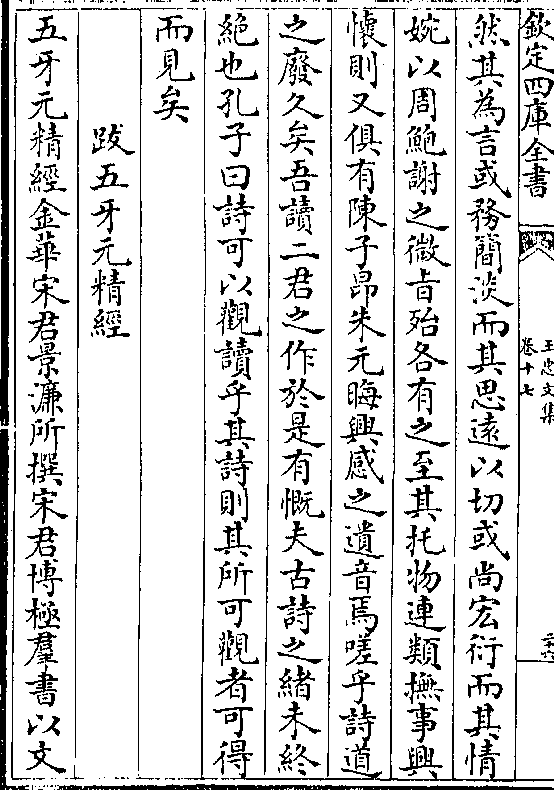 欽定四庫全書
王忠文集
卷十七
然其為言或務簡淡而其思遠以切或尚宏衍而其情
婉以周鮑謝之微旨殆各有之至其托物連類撫事興
懷則又俱有陳子昂朱元晦興感之遺音焉嗟乎詩道
之廢久矣吾讀二君之作於是有慨夫古詩之緒未終
絶也孔子曰詩可以觀讀乎其詩則其所可觀者可得
而見矣
跋五牙元精經
五牙元精經金華宋君景濂所撰宋君博極羣書以文